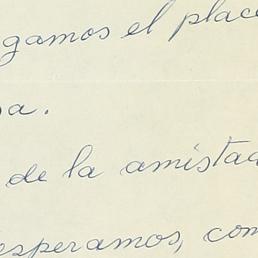 gamos el place
a.
de la amistad
esperamos, com